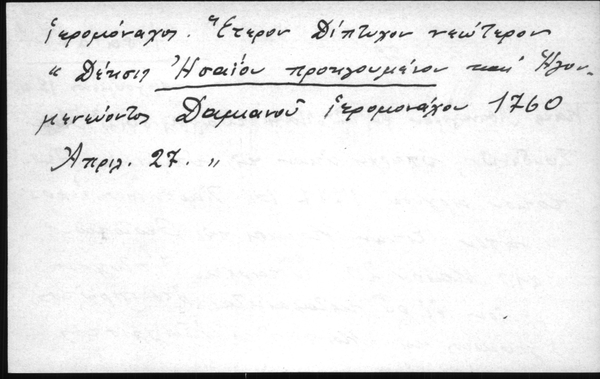 ἱερομόναχος. Ἕτερον Δίπτυχον νεώτερον
"Δέησις Ἠσαΐου προηγουμένου καὶ Ἡγου-
μενεύοντος Δαμιανοῦ ἱερομονάχου 1760
Ἀπριλ. 27."